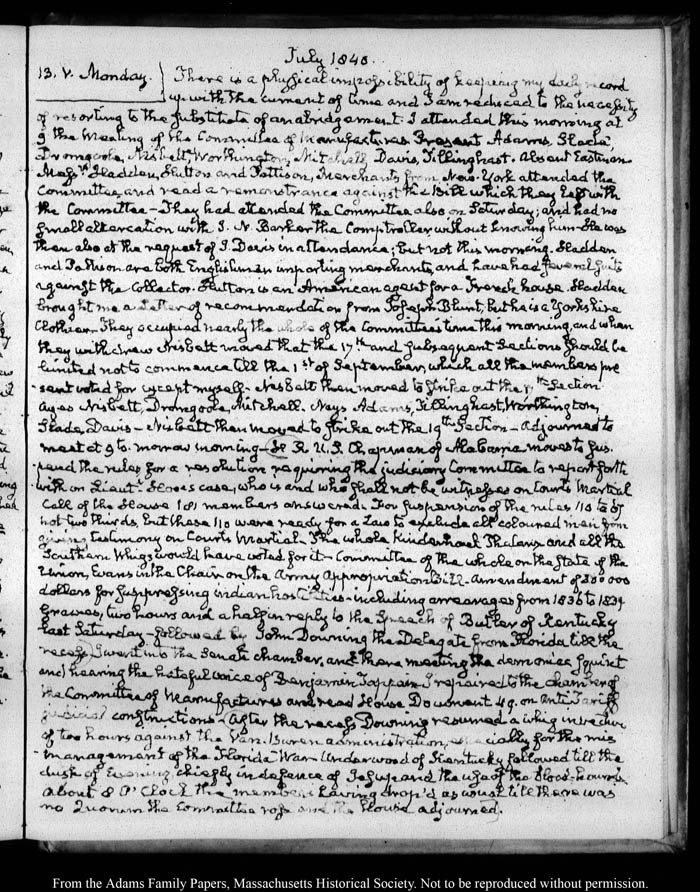 July 1840.
13. V. Monday. There is a physical impossibility of keeping my daily record
up with the current of time and I am reduced to the necessity
of resorting to the substitute of an abridgement. I attended this morning at
9 the Meeting of the Committee of Manufactures Present Adams, Slade,
Dromgoole, Nisbett, Worthington, Mitchell, Davis, Tillinghast. Absent Eastman
Mess.rs Hadden, Hutton and Pattison, Merchants from New-York attended the
Committee, and read a remonstrance against the Bill which they left with
the Committee – They had attended the Committee also on Saturday; and had no
small altercation with J. N. Barker the Comptroller without knowing him. He was
then also at the request of J. Davis in attendance; but not this morning. Hadden
and Pattison are both Englishmen importing merchants, and have had several suits
against the Collector. Hutton is an American agent for a French house. Hadden
brought me a Letter of recommendation from Joseph Blunt, but he is a Yorkshire
Clothier. They occupied nearly the whole of the Committee's time this morning, and when
they withdrew Nisbett moved that the 17.th and subsequent Sections should be
limited not to commence till the 1.st of September, which all the members pre
-sent voted for except myself – Nisbett then moved to strike out the Section
Ayes Nisbett, Dromgoole, Mitchell. Nays Adams, Tillinghast, Worthington,
Slade, Davis – Nisbett then moved to strike out the 19th Section – Adjourned to
meet at 9 to-morrow morning – H. R. U.S. Chapman of Alabama moves to sus
-pend the rules for a resolution requiring the judiciary Committee to report forth
with on Lieut.t Hooe's case, who is and who shall not be witnesses on Courts Martial
Call of the House 181 members answered. For suspension of the rules 110 to 59
not two thirds, but these 110 were ready for a Law to exclude all coloured men from
giving testimony on Courts Martial. The whole Kinderhook Phalanx and all the
Southern Whigs would have voted for it – Committee of the whole on the State of the
Union, Evans in the Chair on the Army Appropriation Bill – amendment of 300 000
dollars for suppressing indian hostilities – including arrearages from 1836 to 1839
Graves, two hours and a half in reply to the Speech of Butler of Kentucky
last Saturday – followed by John Downing the Delegate from Florida till the
recess) I went into the Senate chamber, and there meeting the demoniac squint
and hearing the hateful voice of Benjamin Tappan I repaired to the chamber of
the Committee of Manufactures and read House Document 49. on Anti Tariff
judicial constructions – (After the recess Downing resumed a whig invective
of two hours against the Van-Buren administration, especially for the mis
-management of the Florida War. Underwood of Kentucky followed till the
dusk of Evening chiefly in defence of Jesup and the use of the bloodhounds
About 8 O'Clock the members having drop'd as usual till there was
no Quorum the Committee rose and the House adjourned.
From the Adams Family Papers, Massachusetts Historical Society. Not to be reproduced without permission.